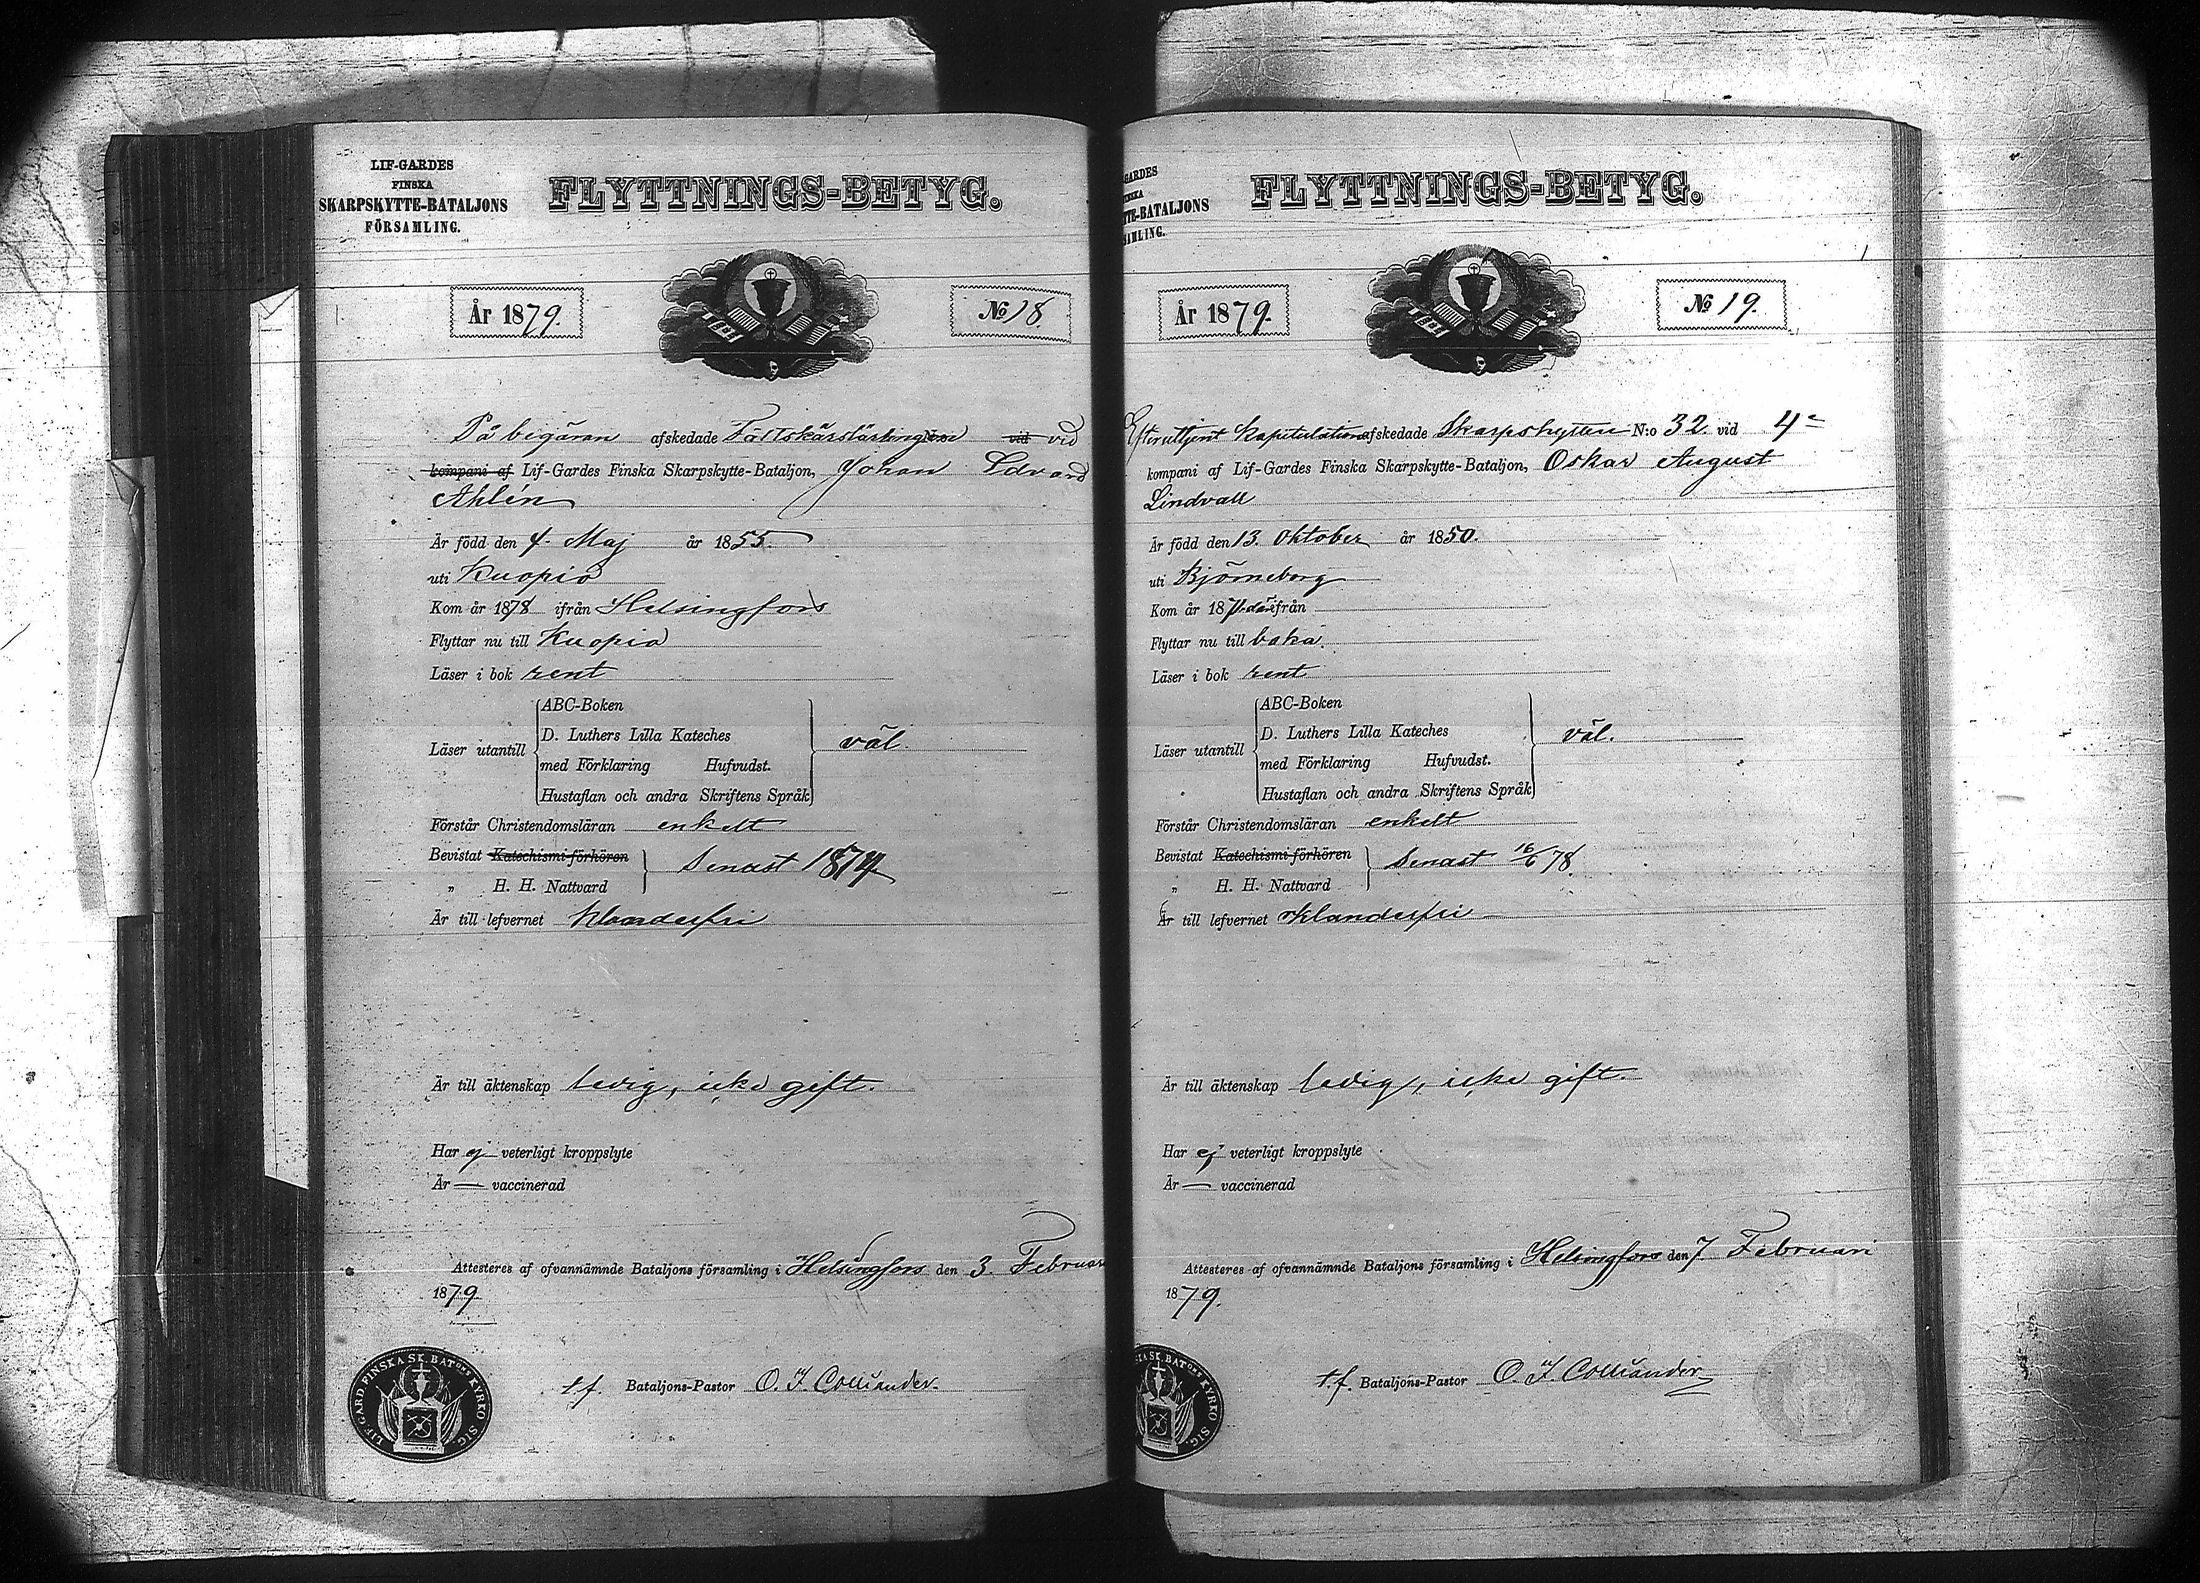 LIF-GARDES
FINSKA
SKARPSKYTTE-BATALJONS
FÖRSAMLING.
FLYTTNINGS-BETYG.
År 1879.
No 18.
På begäran afskedade Fältskärslärlingen vid vid
kompani af Lif-Gardes Finska Skarpskytte-Bataljon, Johan Edvard
Ahlén
Är född den 4. Maj år 1855.
uti Kuopio
Kom år 1878 ifrån Helsingfors
Flyttar nu till Kuopio
Läser i bok rent
Läser utantill
ABC-Boken
D. Luthers Lilla Kateches
med Förklaring Hufvudst.
Hustaflan och andra Skriftens Språk
väl
Förstår Christendomsläran enkelt
Bevistat Katechismi-förhören
„ H. H. Nattvard
Senast 1874
Är till lefvernet klanderfri
Är till äktenskap ledig, icke gift.
Har ej veterligt kroppslyte
Är — vaccinerad
Attesteres af ofvannämnde Bataljons församling i Helsingfors den 3. Februari
1879
t.f. Bataljons-Pastor O. I. Colliander.
LIF. GARD. FINSKA SK. BATONS KYRKO SIG.
GARDES
TTE-BATALJONS
FLYTTNINGS-BETYG.
År 1879.
No 19.
Efter uttjent kapitulation afskedade Skarpskytten N:o 32. vid 4e
kompani af Lif-Gardes Finska Skarpskytte-Bataljon, Oskar August
Lindvall
Är född den 13. Oktober år 1850.
uti Björneborg
Kom år 1871 därifrån
Flyttar nu till baka.
Läser i bok rent
Läser utantill
ABC-Boken
D. Luthers Lilla Kateches
med Förklaring Hufvudst.
Hustaflan och andra Skriftens Språk
väl.
Förstår Christendomsläran enkelt
Bevistat Katechismi-förhören
„ H. H. Nattvard
Senast 16/6 78.
Är till lefvernet oklanderfri
Är till äktenskap ledig, icke gift.
Har ej veterligt kroppslyte
Är — vaccinerad
Attesteres af ofvannämnde Bataljons församling i Helsingfors den 7 Februari
1879.
t.f. Bataljons-Pastor O. I. Colliander
SKA SK. BATONS KYRKO SIG.